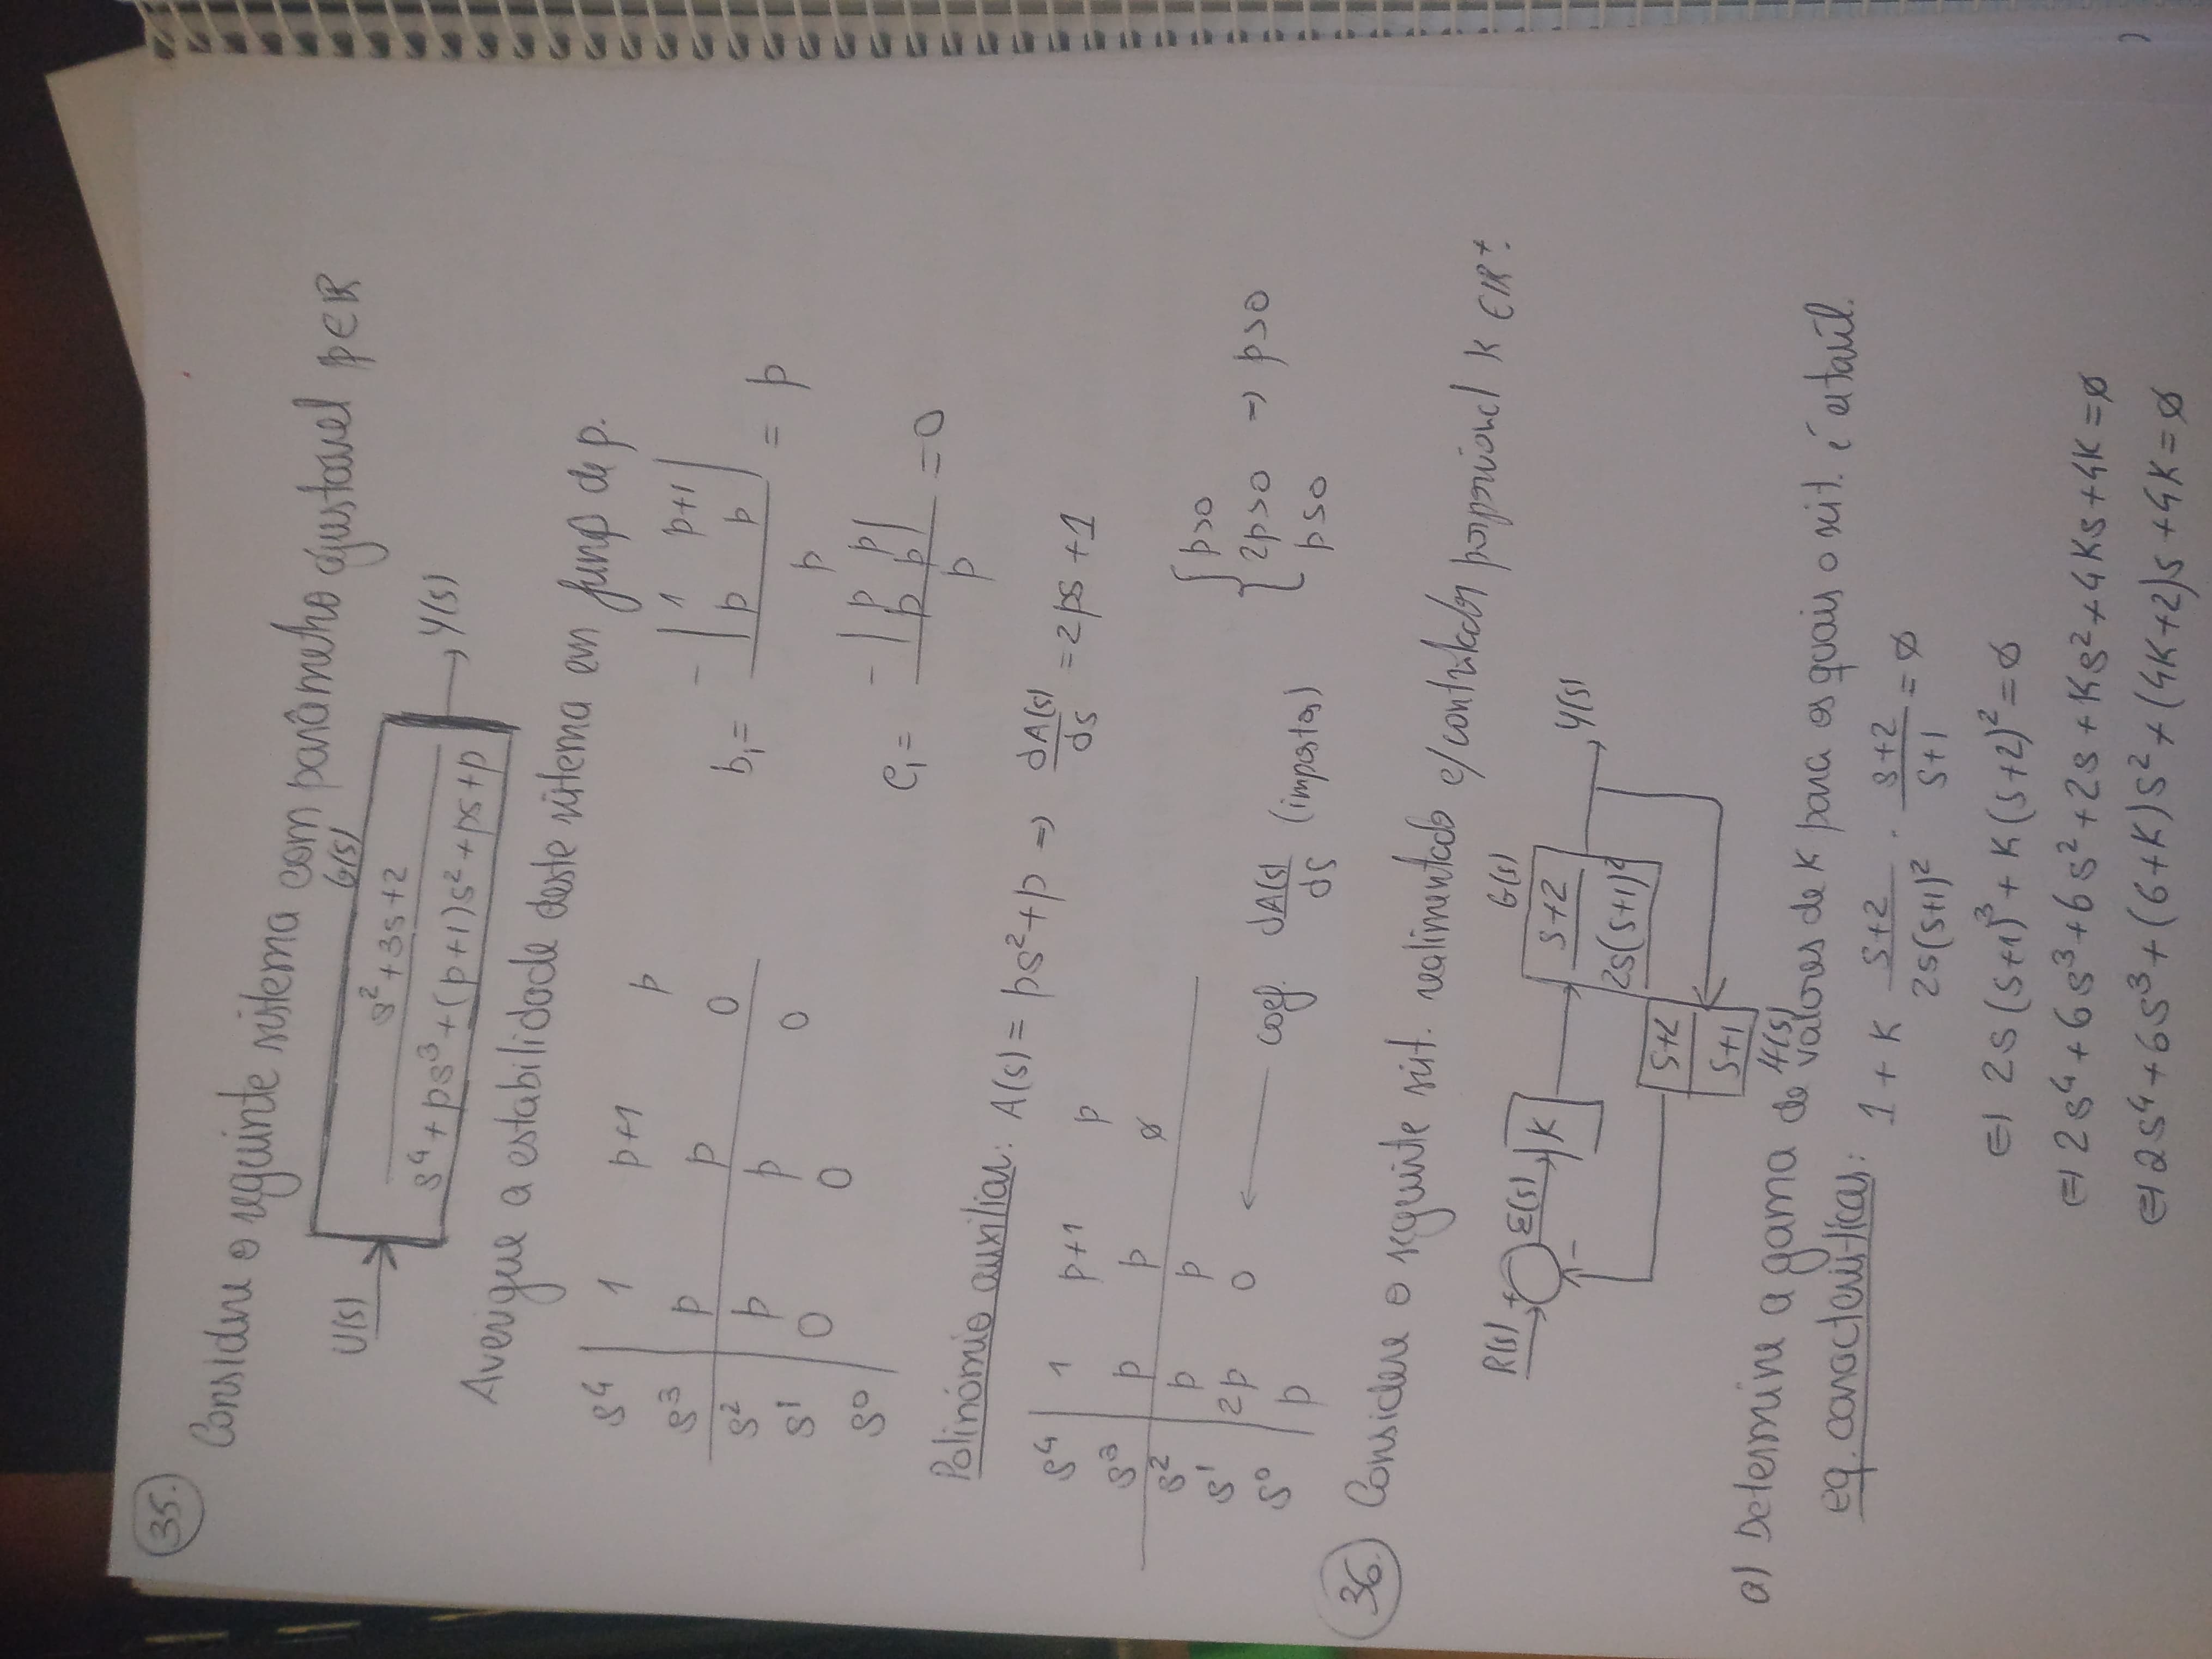 35.
Considere o seguinte sistema com parâmetro ajustável p∈ℝ
G(s)
U(s)
s²+3s+2
s⁴+ps³+(p+1)s²+ps+p
Y(s)
Averigue a estabilidade deste sistema em função de p.
s⁴ | 1 p+1 p
s³ | p p 0
s² | p p 0
s¹ | 0 0
s⁰ |
b₁= -|1 p+1; p p| / p = p
c₁= -|p p; p p| / p =0
Polinómio auxiliar: A(s)= ps²+p ⇒ dA(s)/ds =2ps+1
s⁴ | 1 p+1 p
s³ | p p ∅
s² | p p
s¹ | 2p 0 ← coef. dA(s)/ds (impostos)
s⁰ | p
{ p>0
2p>0 ⇒ p>0
p>0
36. Considere o seguinte sist. realimentado c/controlador porporcional K ∈ℝ⁺.
R(s) + E(s) K
-
G(s)
s+2
2s(s+1)²
Y(s)
s+2
s+1
H(s)
a) Determine a gama de valores de K para os quais o sist. é estável.
eq. características: 1+K (s+2)/(2s(s+1)²) · (s+2)/(s+1) =∅
⇔ 2s(s+1)³+K(s+2)²=∅
⇔ 2s⁴+6s³+6s²+2s+Ks²+4Ks+4K=∅
⇔ 2s⁴+6s³+(6+K)s²+(4K+2)s+4K=∅